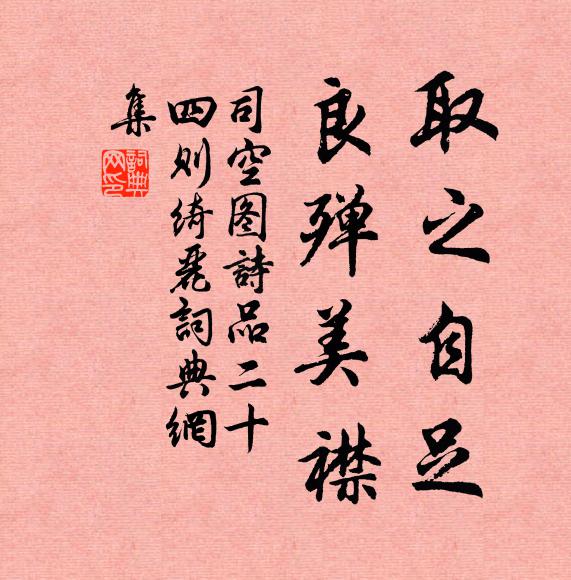 取之自足
良殫美襟
司空图詩品二十
四则綺麗詞典網
集
詞典網印